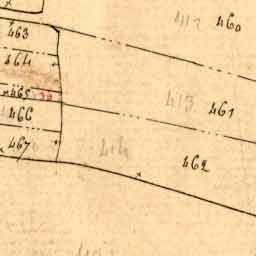 412 460
463
464
465
413 461
466
467
414 462